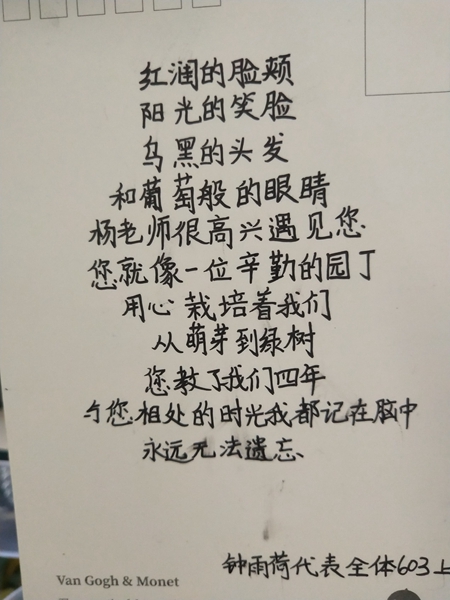 红润的脸颊
阳光的笑脸
乌黑的头发
和葡萄般的眼睛
杨老师很高兴遇见您
您就像一位辛勤的园丁
用心栽培着我们
从萌芽到绿树
您教了我们四年
与您相处的时光我都记在脑中
永远无法遗忘、
钟雨荷代表全体603上
Van Gogh & Monet